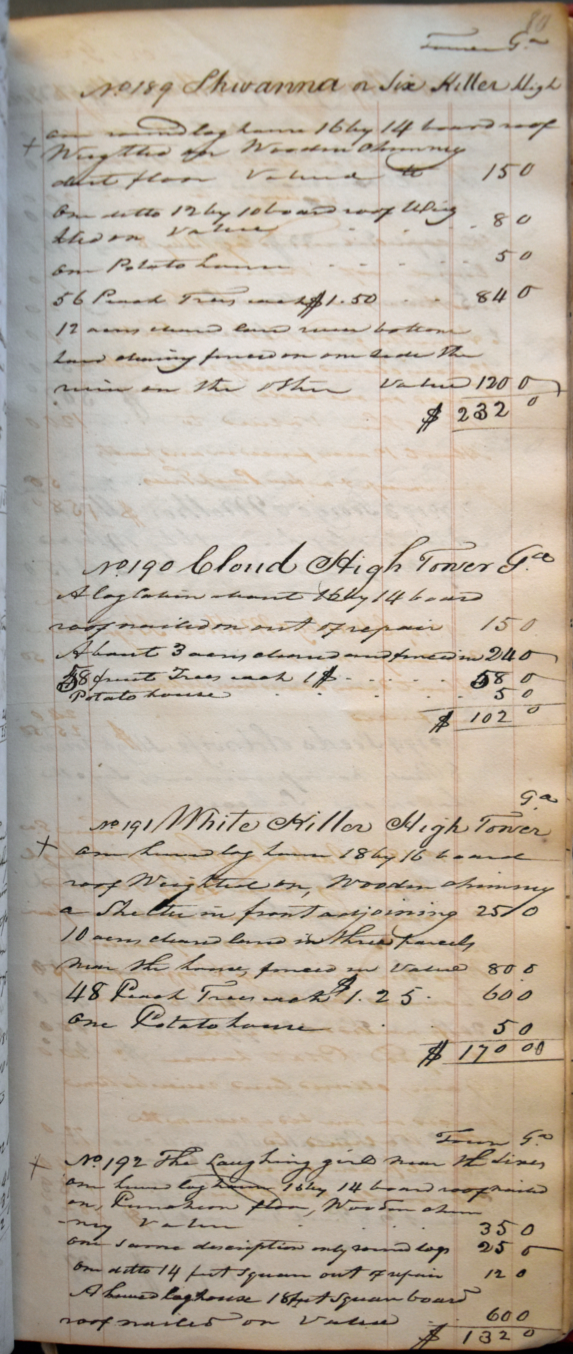 80
Tower Ga
No 189 Shwanna or Six Killer High
+ one round log house 16 by 14 board roof
Weighted on Wooden chimney
dirt floor Valued to 15 0
One ditto 12 by 10 board roof Weig
hted on Value 8 0
one Potato house 5 0
56 Peach Trees each $1.50 84 0
12 acres cleared land river bottom
land fenced on one side the
river on the other Value 120 0
$ 232 0
No 190 Cloud High Tower Ga
A log cabin about 16 by 14 board
roof nailed on out of repair 15 0
About 3 acres cleared and fenced in 24 0
58 fruit Trees each 1$ 58 0
Potato house 5 0
$ 102 0
Ga
No 191 White Killer High Tower
+ one hewed log house 18 by 16 board
roof Weighted on, Wooden chimney
a Shelter in front adjoining 25 0
10 acres cleared land in three parcels
near the house, fenced in Value 80 0
48 Peach Trees each $1.25 60 0
One Potato house 5 0
$ 170 00
Town Ga
+ No 192 The Laughing girl near the Sixes
one hewed log house 16 by 14 board roof nailed
on, Puncheon floor, Wooden chim
ney Value 35 0
one same description only round logs 25 0
One ditto 14 feet square out of repair 12 0
A hewed log house 18 feet square board
roof nailed on Value 60 0
$ 132 0